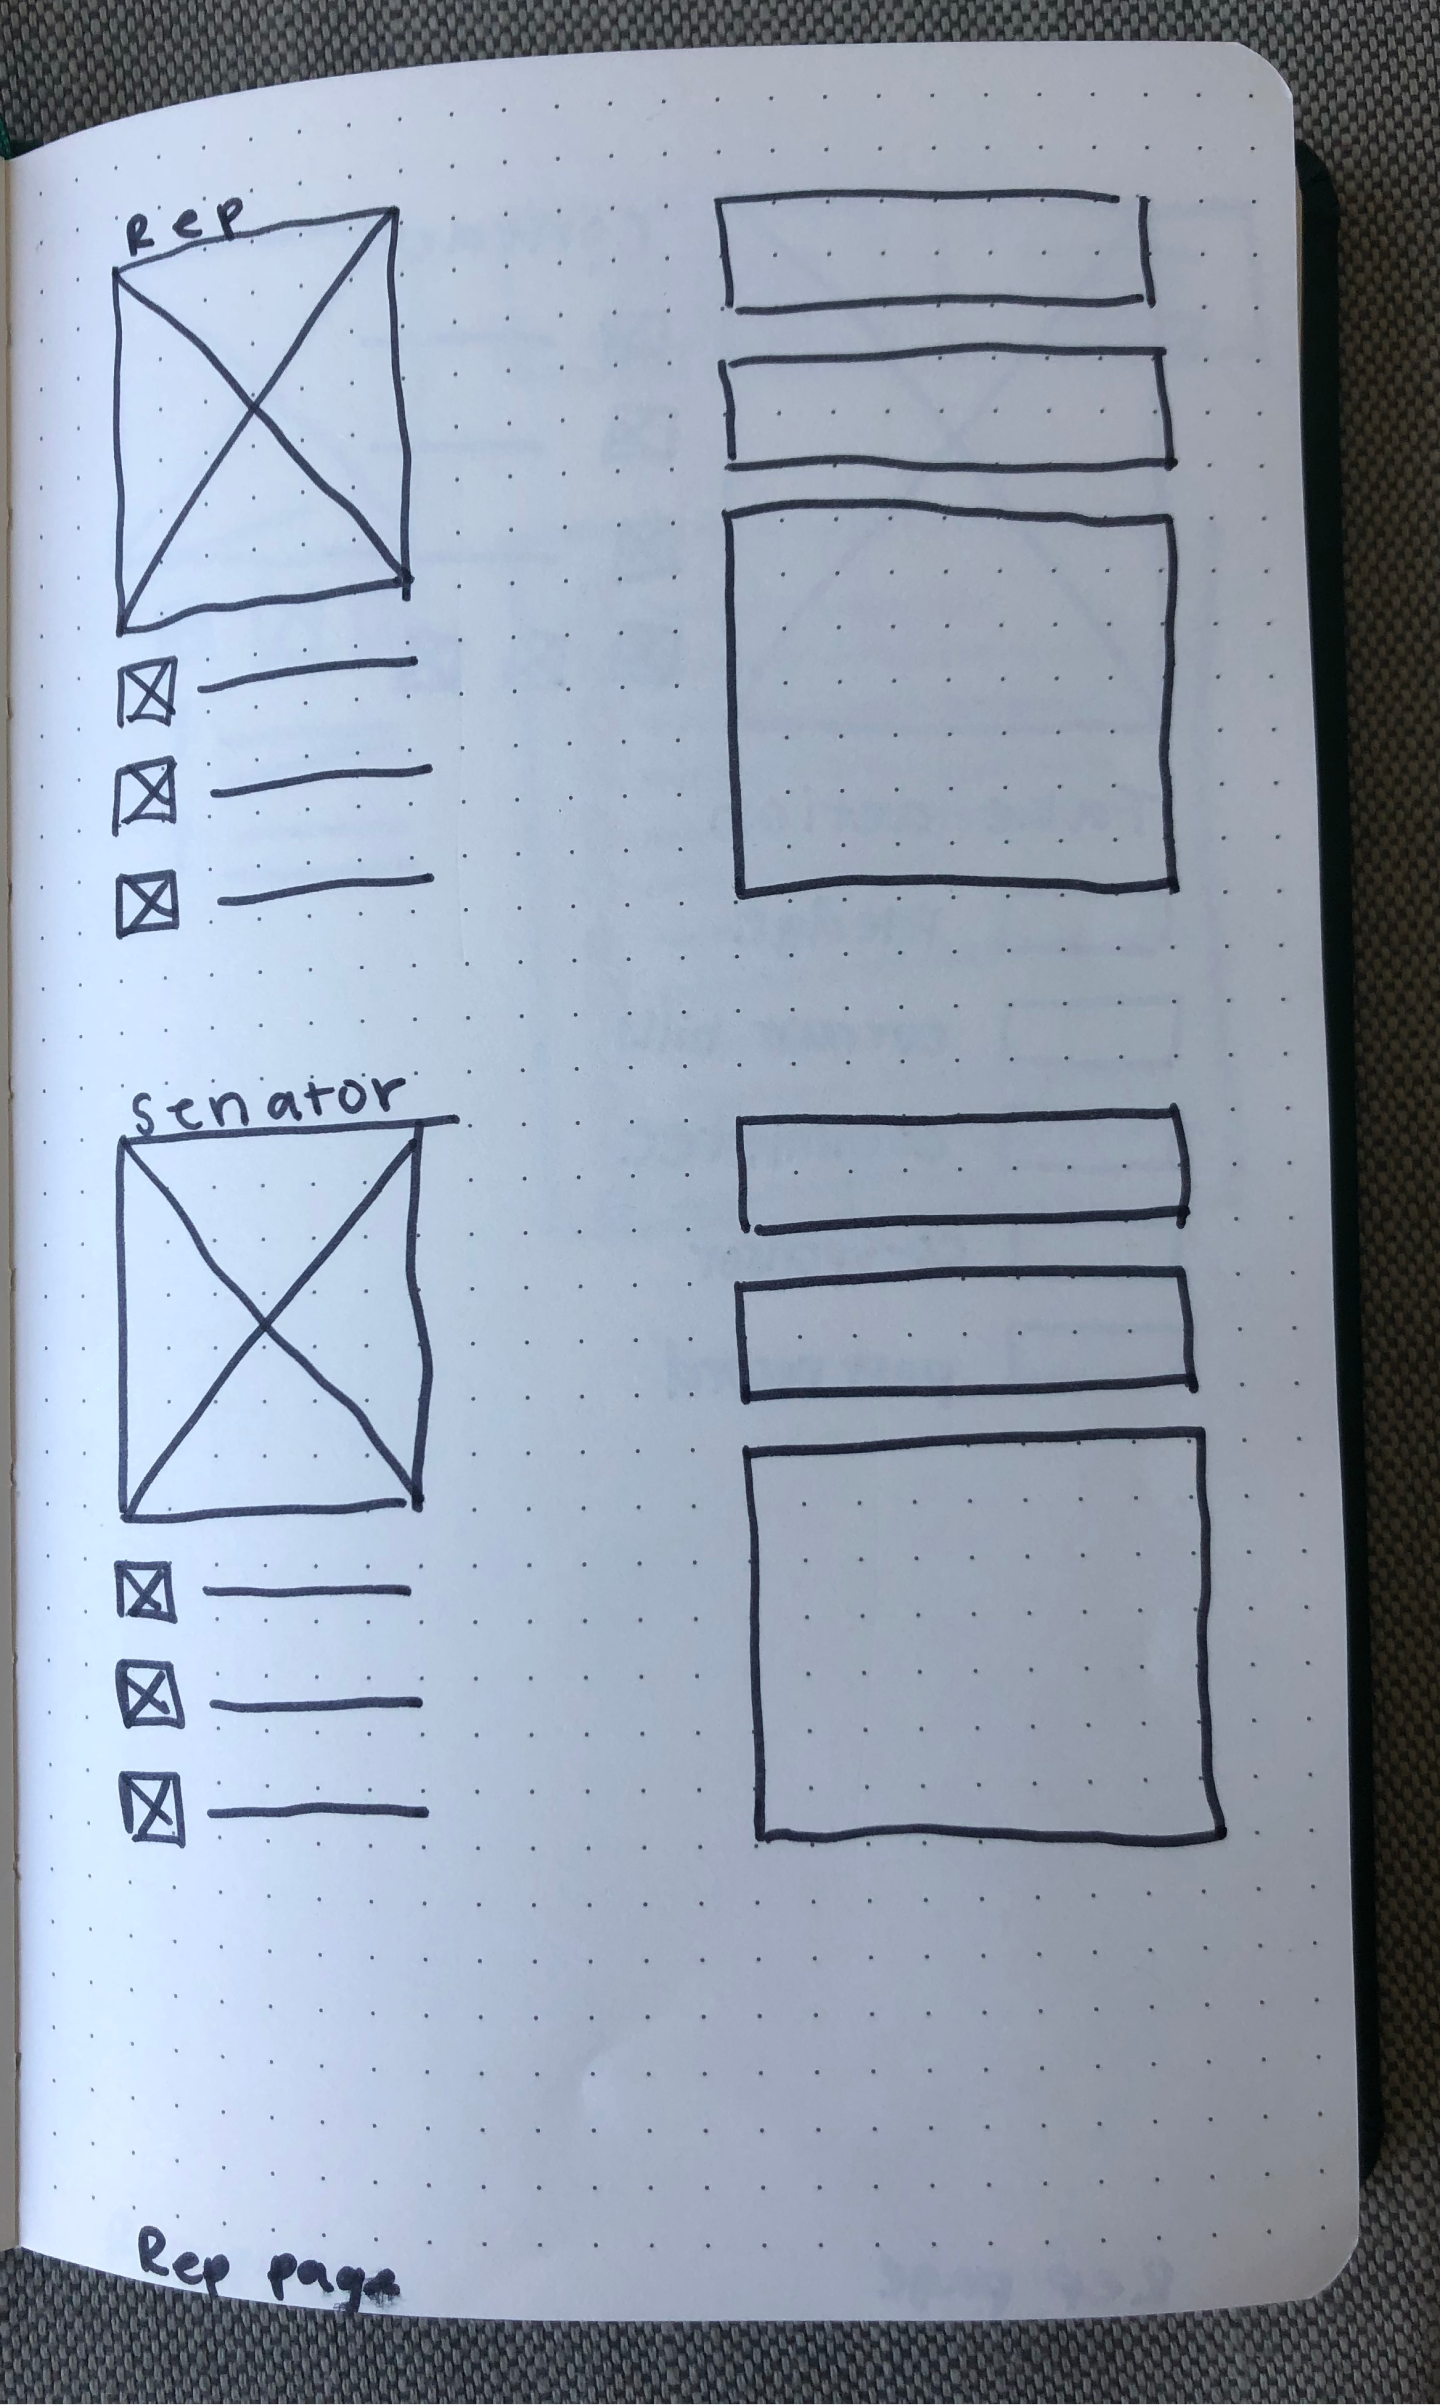 Rep
Senator
Rep page